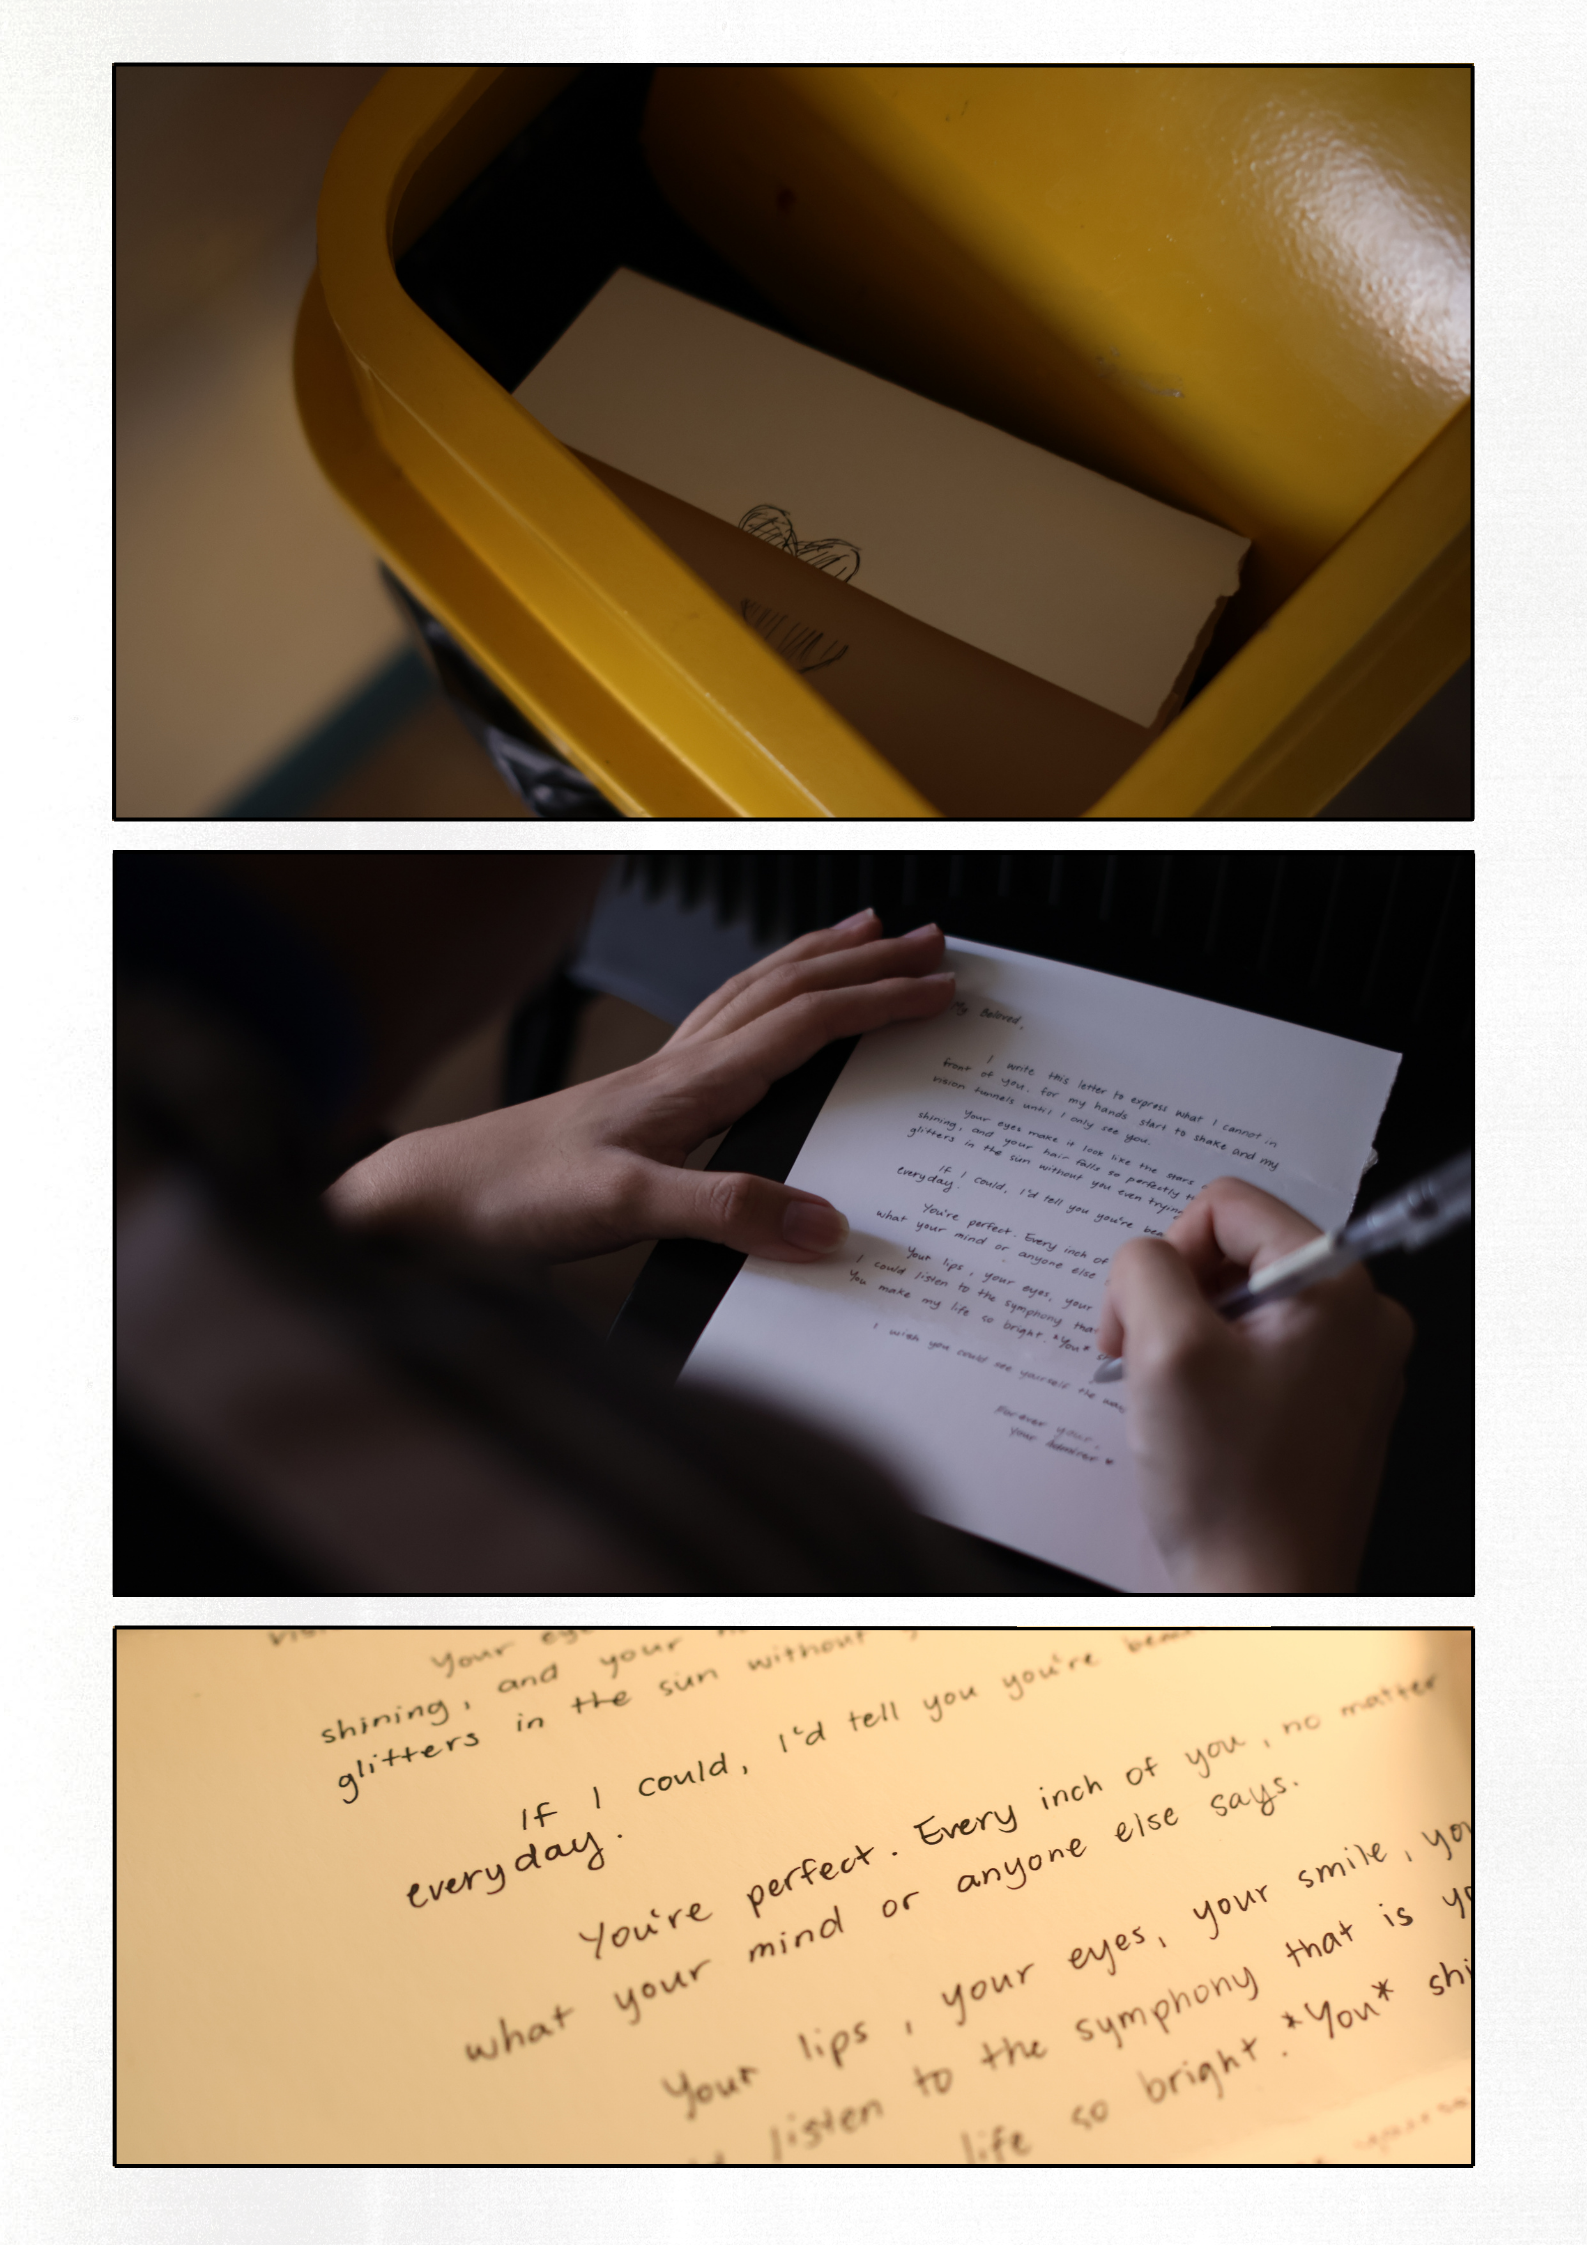 My Beloved,
I write this letter to express what I cannot in
front of you. for my hands start to shake and my
vision tunnels until I only see you.
Your eyes make it look like the stars
shining, and your hair falls so perfectly
glitters in the sun without you even trying
If I could, I'd tell you you're
everyday.
You're perfect. Every inch of
what your mind or anyone else
Your lips, your eyes, your
I could listen to the symphony that
You make my life so bright. *You*
I wish you could see yourself the
Forever your,
your admirer
Your
shining, and your
glitters in the sun without
If I could, I'd tell you you're
everyday.
You're perfect. Every inch of you, no matter
what your mind or anyone else says.
Your lips, your eyes, your smile,
listen to the symphony that is
life so bright. *You*